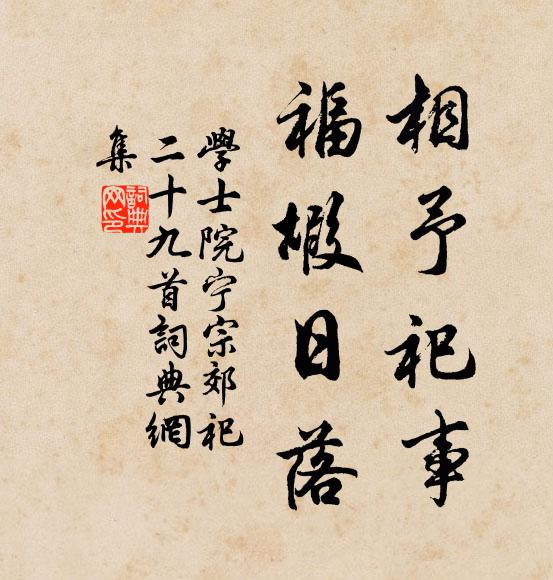 相予祀事
福嘏日落
學士院宁宗郊祀
二十九首詞典網
集
詞典
网印